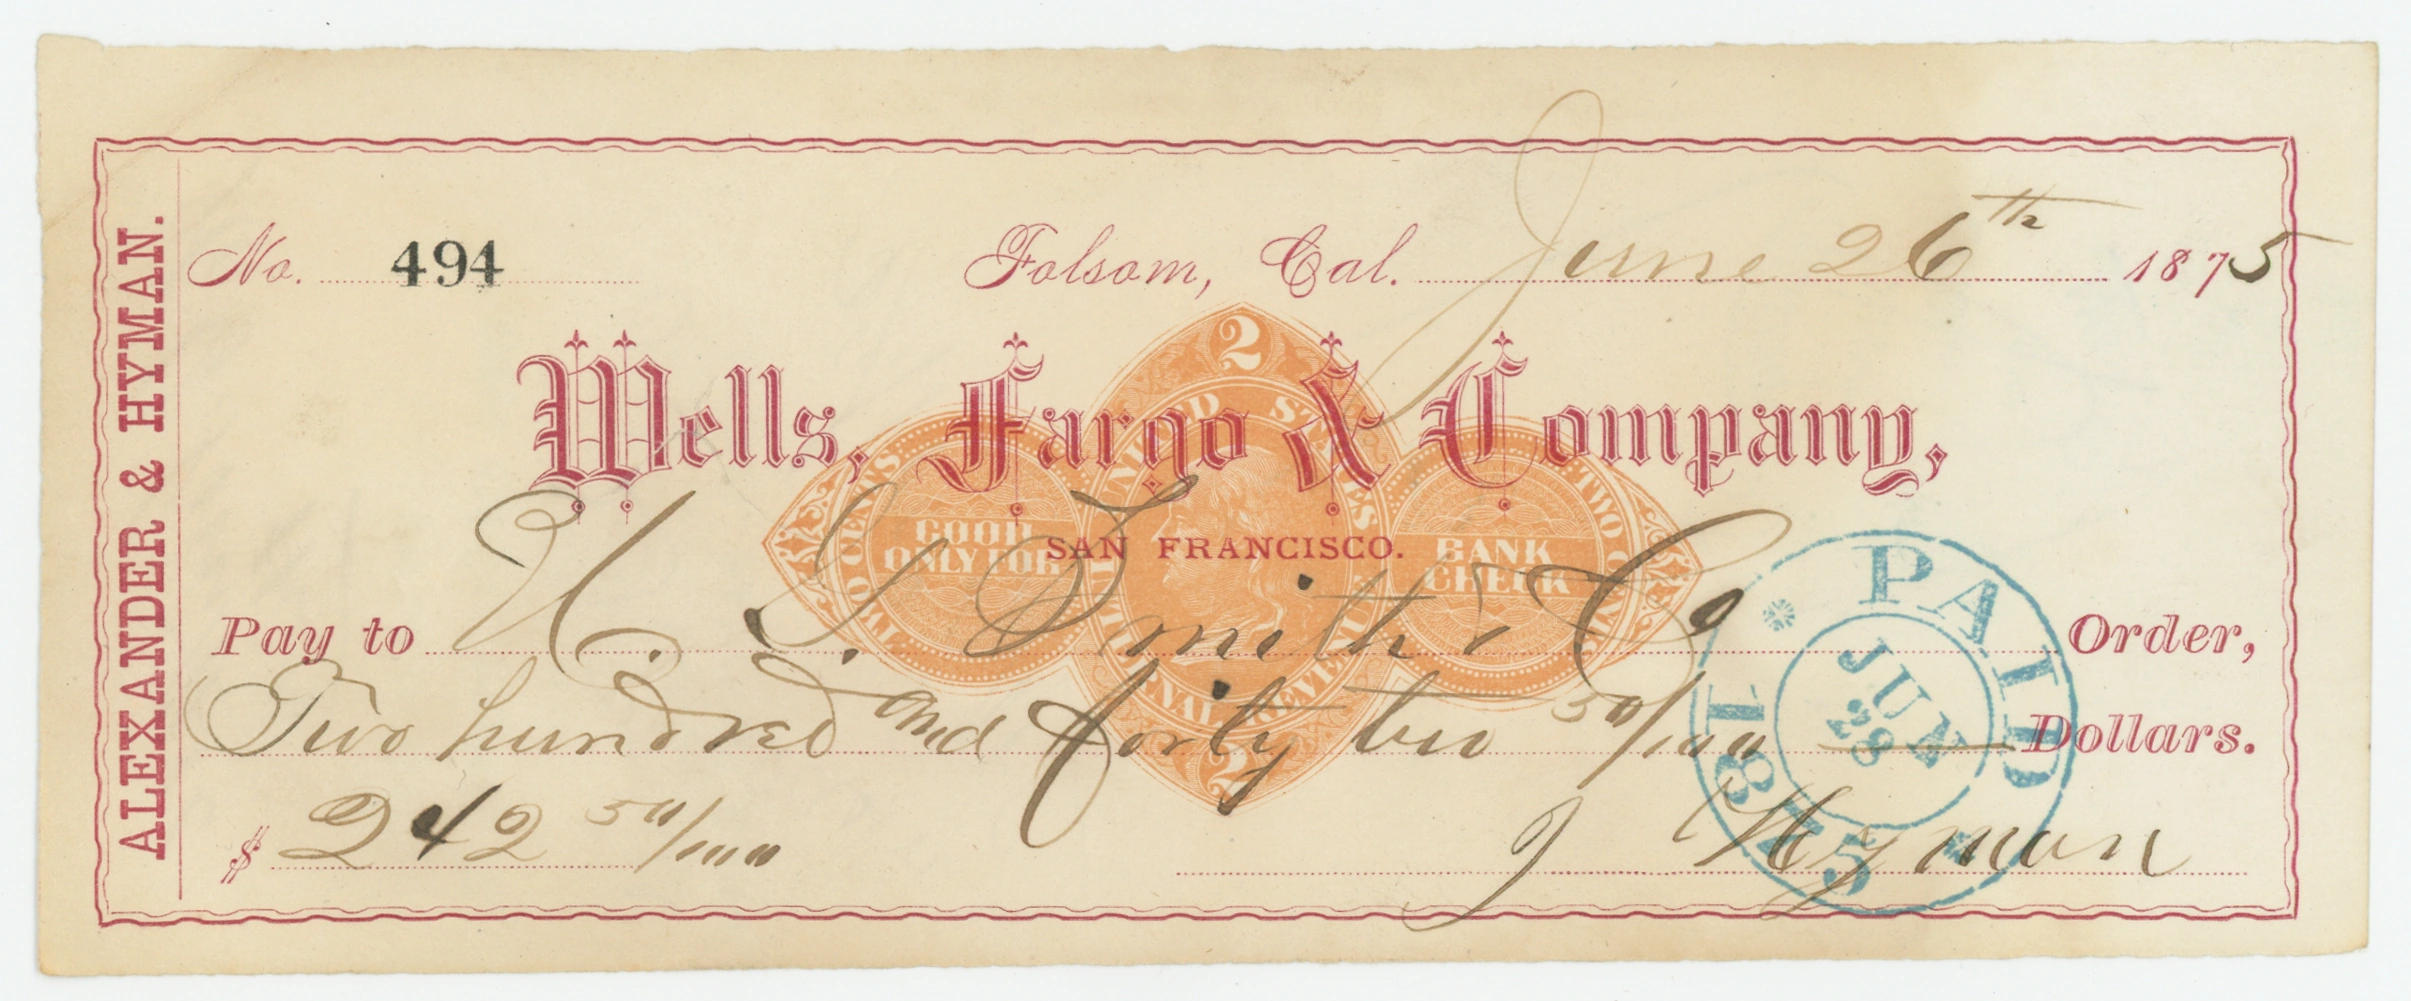 ALEXANDER & HYMAN.
No. 494 Folsom, Cal. June 26th 1875
Wells, Fargo & Company,
SAN FRANCISCO.
2
UNITED STATES
INTERNAL REVENUE
TWO CENTS
TWO CENTS
GOOD
ONLY FOR
BANK
CHECK
2
Pay to Smith & Co Order,
Two hundred and forty two 50/100 Dollars.
$ 242 50/100
J Hyman
PAID
JUN
28
1875